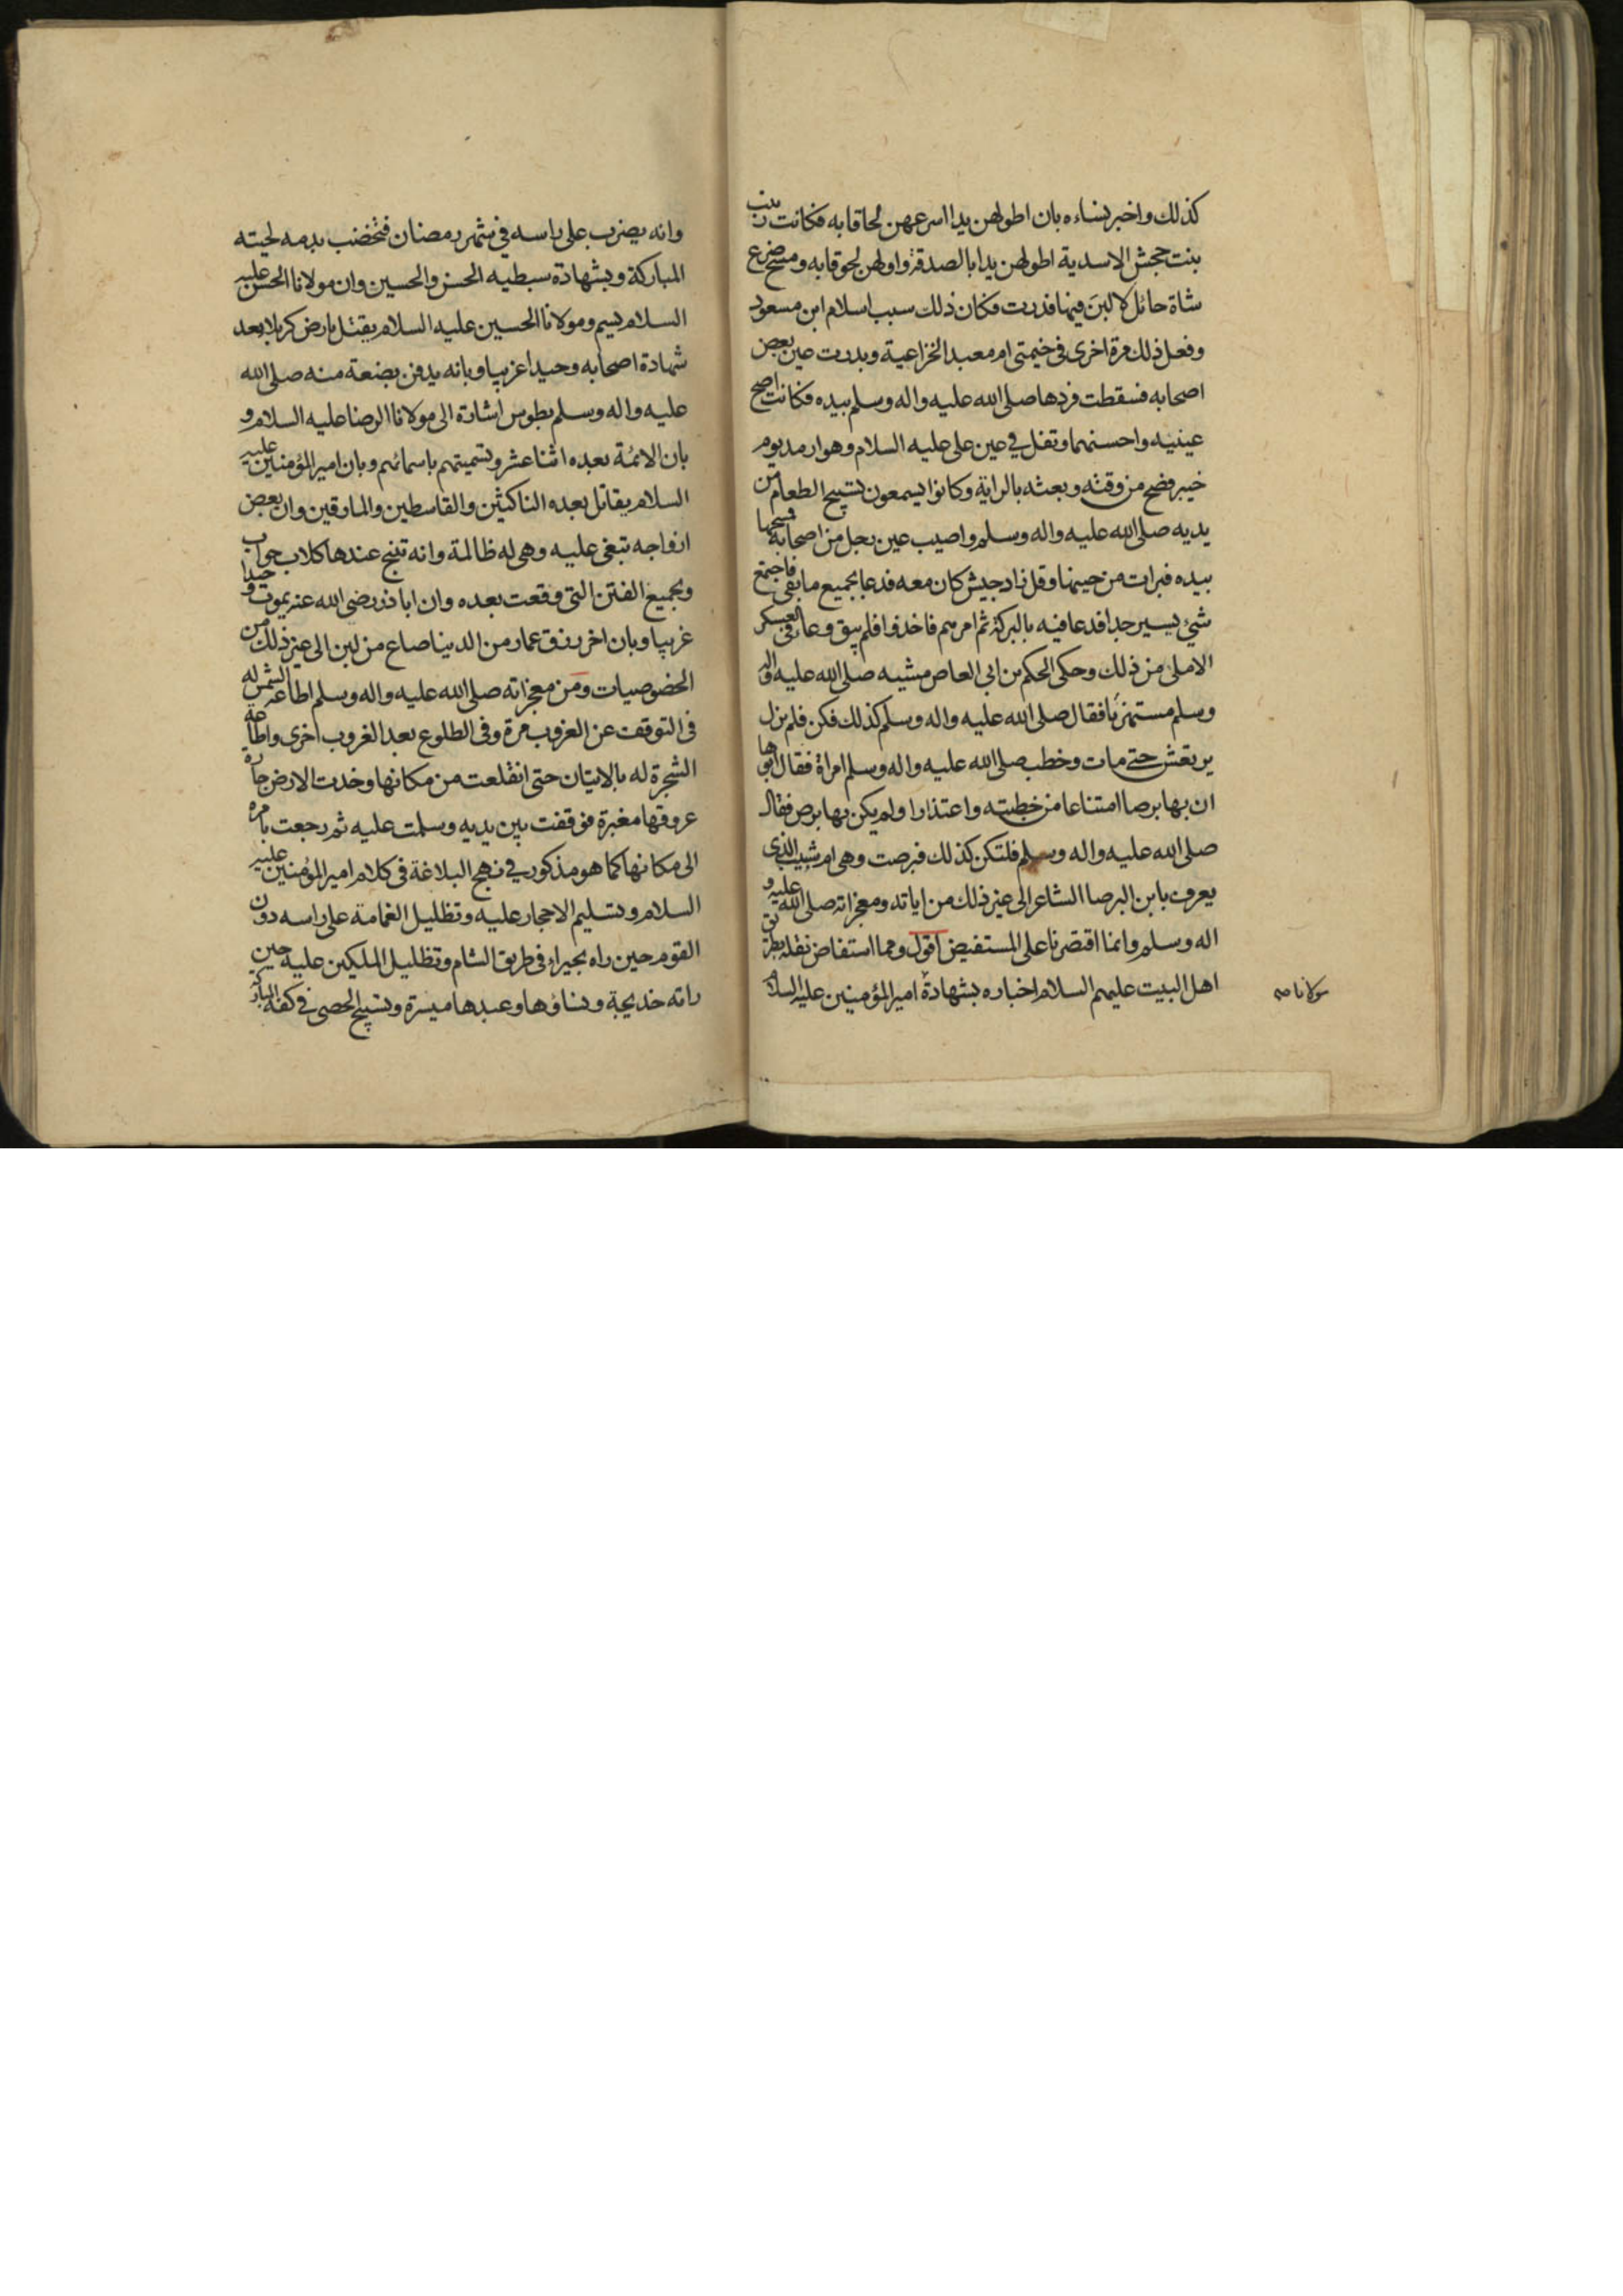 كذلك واخبر نساءه بان اطولهن يدا اسرعهن لحاقا به فكانت زينب
بنت جحش الاسدية اطولهن يدا بالصدقة واولهن لحوقا به ومسح ضرع
شاة حائل لا لبن فيها فدرت فكان ذلك سبب اسلام ابن مسعود
وفعل ذلك مرة اخرى في خيمتي ام معبد الخزاعية وبدرت عين بعض
اصحابه فسقطت فردها صلى الله عليه واله وسلم بيده فكانت اصح
عينيه واحسنهما وتفل في عين على عليه السلام وهو ارمد يوم
خيبر فصح من وقته وبعثه بالراية وكانوا يسمعون تسبيح الطعام من
يديه صلى الله عليه واله وسلم واصيب عين رجل من اصحابه فمسحها
بيده فبرات من حينها وقل زاد جيش كان معه فدعا بجميع ما بقى فاجتمع
شئ يسير جدا فدعا فيه بالبركة ثم امرهم فاخذوا فلم يبق وعا في العسكر
الا ملئ من ذلك وحكى الحكم بن ابى العاص مشيه صلى الله عليه واله
وسلم مستهزئا فقال صلى الله عليه واله وسلم كذلك فكن فلم يزل
يرتعش حتى مات وخطب صلى الله عليه واله وسلم امراة فقال ابوها
ان بها برصا امتناعا من خطبته واعتذارا ولم يكن بها برص فقال
صلى الله عليه واله وسلم فلتكن كذلك فبرصت وهى ام شبيب الذى
يعرف بابن البرصا الشاعر الى غير ذلك من اياته ومعجزاته صلى الله عليه و
اله وسلم وانما اقتصرنا على المستفيض اقول ومما استفاض نقله بطرق
اهل البيت عليهم السلام اخباره بشهادة امير المؤمنين عليه السلام
مولانا صح
وانه يضرب على راسه في شهر رمضان فتخضب بدمه لحيته
المباركة وبشهادة سبطيه الحسن والحسين وان مولانا الحسن عليه
السلام يسم ومولانا الحسين عليه السلام يقتل بارض كربلا بعد
شهادة اصحابه وحيدا غريبا وبانه يدفن بضعة منه صلى الله
عليه واله وسلم بطوس اشارة الى مولانا الرضا عليه السلام و
بان الائمة بعده اثنا عشر وتسميتهم باسمائهم وبان امير المؤمنين عليه
السلام يقاتل بعده الناكثين والقاسطين والمارقين وان بعض
ازواجه تبغى عليه وهى له ظالمة وانه تنبح عندها كلاب حواب
وبجميع الفتن التى وقعت بعده وان اباذر رضى الله عنه يموت وحيدا
غريبا وبان اخر رزق عمار من الدينا صاع من لبن الى غير ذلك من
الخصوصيات ومن معجزاته صلى الله عليه واله وسلم اطاعة الشمس له
في التوقف عن الغروب مرة وفي الطلوع بعد الغروب اخرى واطاعة
الشجرة له بالاتيان حتى انقلعت من مكانها وخدت الارض جارة
عروقها مغبرة فوقفت بين يديه وسلمت عليه ثم رجعت بامره
الى مكانها كما هو مذكور في نهج البلاغة في كلام امير المؤمنين عليه
السلام وتسليم الاحجار عليه وتظليل الغمامة على راسه دون
القوم حين راه بحيراء في طريق الشام وتظليل الملكين عليه حين
راته خديجة ونساؤها وعبدها ميسرة وتسبيح الحصى في كفه المباركة